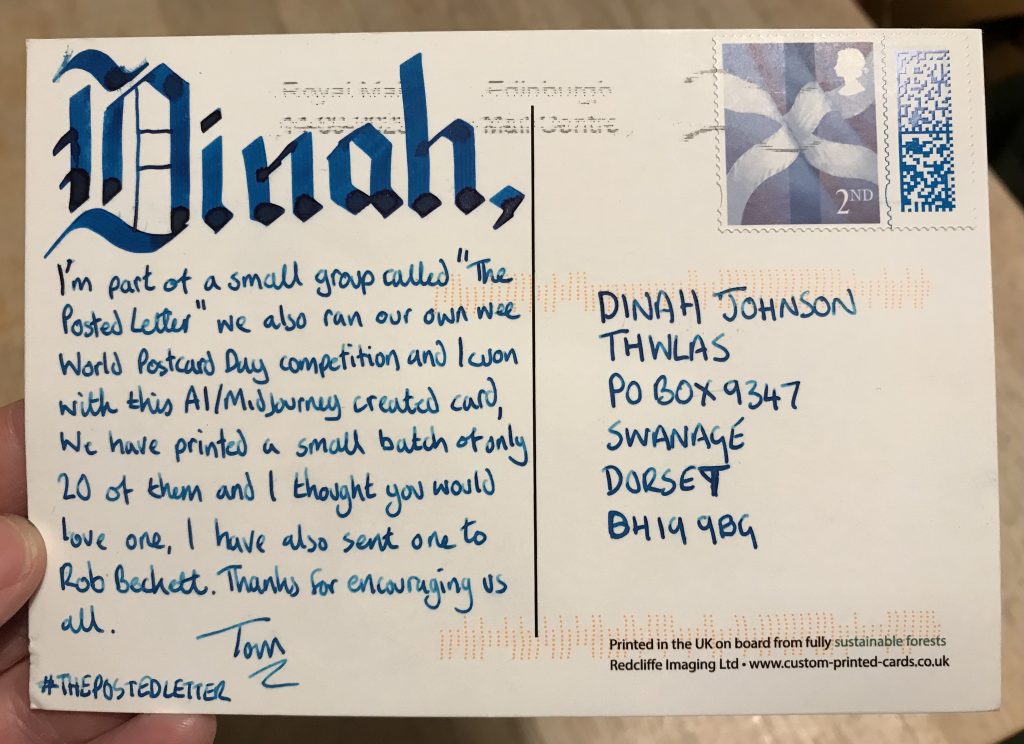 Dinah,
I'm part of a small group called "The
Posted Letter" we also ran our own wee
World Postcard Day competition and I won
with this AI/Midjourney created card,
We have printed a small batch of only
20 of them and I thought you would
love one, I have also sent one to
Rob Beckett. Thanks for encouraging us
all.
Tom
#THEPOSTEDLETTER
Royal Mail
Edinburgh
Mail Centre
2ND
DINAH JOHNSON
THWLAS
PO BOX 9347
SWANAGE
DORSET
BH19 9BG
Printed in the UK on board from fully sustainable forests
Redcliffe Imaging Ltd • www.custom-printed-cards.co.uk